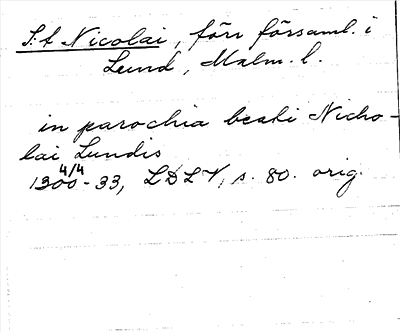 S:t Nicolai, förr församl. i
Lund, Malm. l.
in parochia beati Nicho-
lai Lundis
4/4
1300-33, LDLV, s. 80. orig.